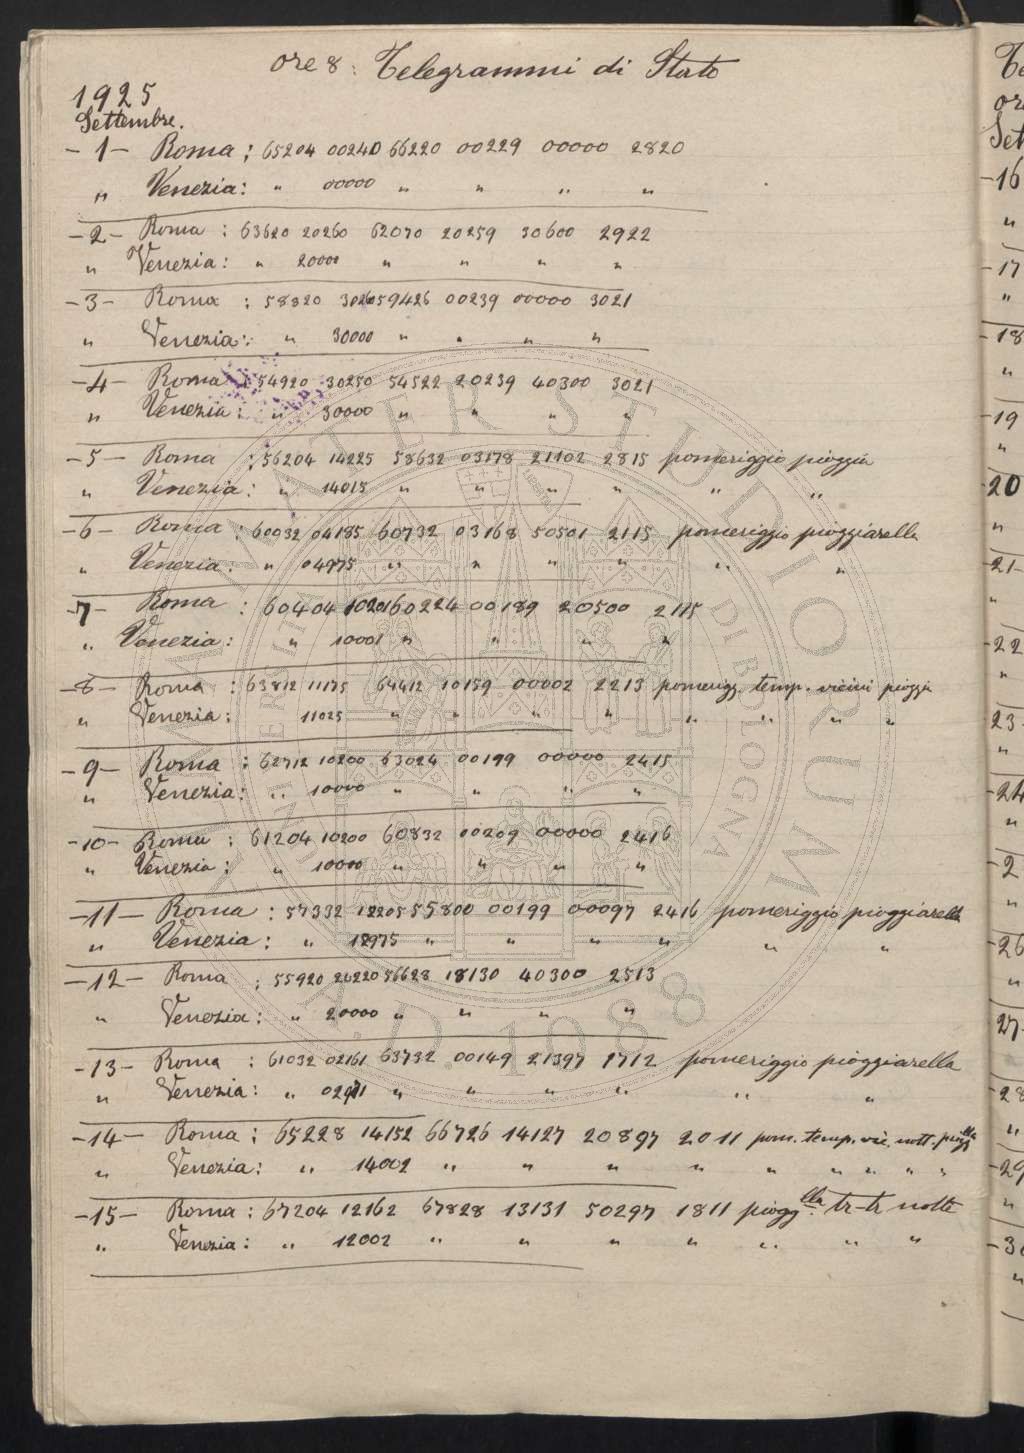 ore 8: Telegrammi di Stato
1925
Settembre.
-1- Roma : 65204 00240 66220 00229 00000 2820
" Venezia: " 00000 " " " "
-2- Roma : 63620 20260 62070 20259 30600 2922
" Venezia: " 20000 " " " "
-3- Roma : 58820 59426 00239 00000 3021
" Venezia: " 30000 " " " "
-4- Roma : 54920 30250 54522 20239 40300 3021
" Venezia: " 30000 " " " "
-5- Roma : 56204 14225 58632 03178 21102 2815 pomeriggio pioggia
" Venezia: " 14015 " " " " " "
-6- Roma : 60032 04185 60732 03168 50501 2115 pomeriggio pioggiarella
" Venezia: " 04975 " " " " " "
-7- Roma : 60404 10201 60224 00189 20500 2115
" Venezia: " 10001 " " " "
-8- Roma : 63812 11175 64412 10159 00002 2213 pomerigg. temp. vicini pioggia
" Venezia: 11025 " " " " " " " "
-9- Roma : 62712 10200 63024 00199 00000 2415
" Venezia: " 10000 " " " "
-10- Roma : 61204 10200 60832 00209 00000 2416
" Venezia: " 10000 " " " "
-11- Roma : 57332 12205 55800 00199 00097 2416 pomeriggio pioggiarella
" Venezia: " 12975 " " " " " "
-12- Roma : 55920 20220 56628 18130 40300 2513
" Venezia: " 20000 " " " "
-13- Roma : 61032 02161 63732 00149 21397 1712 pomeriggio pioggiarella
" Venezia: " " " " " " "
-14- Roma : 65228 14152 66726 14127 20897 2011 pom. temp. vic. nott. piogglla
" Venezia: " 14002 " " " " " " " " "
-15- Roma : 67204 12162 67828 13131 50297 1811 piogglla. tr-tr notte
" Venezia: " 12002 " " " " " " "
ALMA MATER STUDIORUM
A.D. 1088
Te
or
Set
-16
"
-17
"
-18
"
-19
"
-20
"
-21-
"
-22
"
23-
"
-24
"
-2
"
-26
"
27-
-28
"
-29
"
-30
"